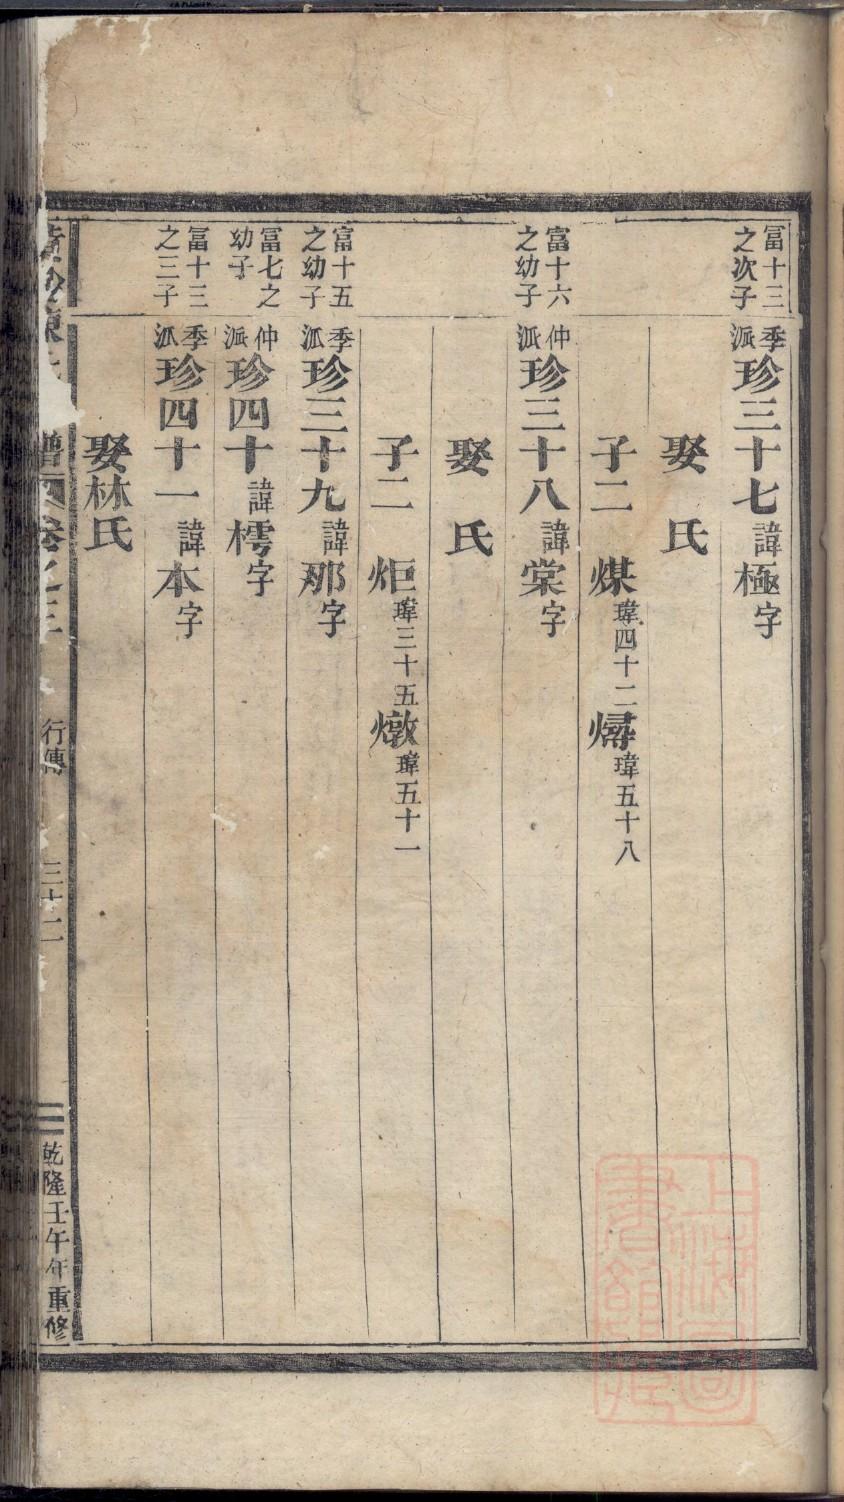 富十三之次子
季派珍三十七諱極字
娶 氏
子二 煤瑋四十二 燖瑋五十八
富十六之幼子
仲派珍三十八諱棠字
娶 氏
子二 炬瑋三十五 燉瑋五十一
富十五之幼子
季派珍三十九諱那字
富七之幼子
仲派珍四十諱樗字
富十三之三子
季派珍四十一諱本字
娶林氏
譜 卷之三 行傳 三十二 乾隆壬午年重修
上海圖書館藏